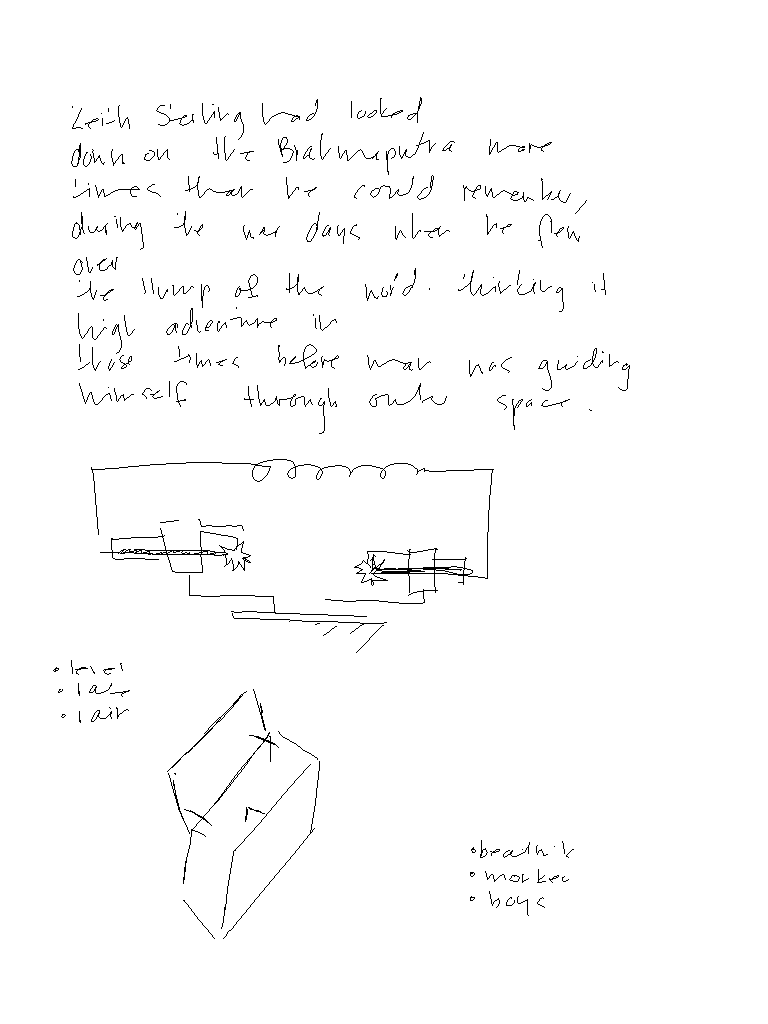 Keith Sterling had looked
down on the Brahmaputra more
times than he could remember,
during the war days when he flew
over
the Hump of the world. thinking it
high adventure in
those times before man was guiding
himself through outer space.
• level
• rate
• rain
• beatnik
• market
• boys